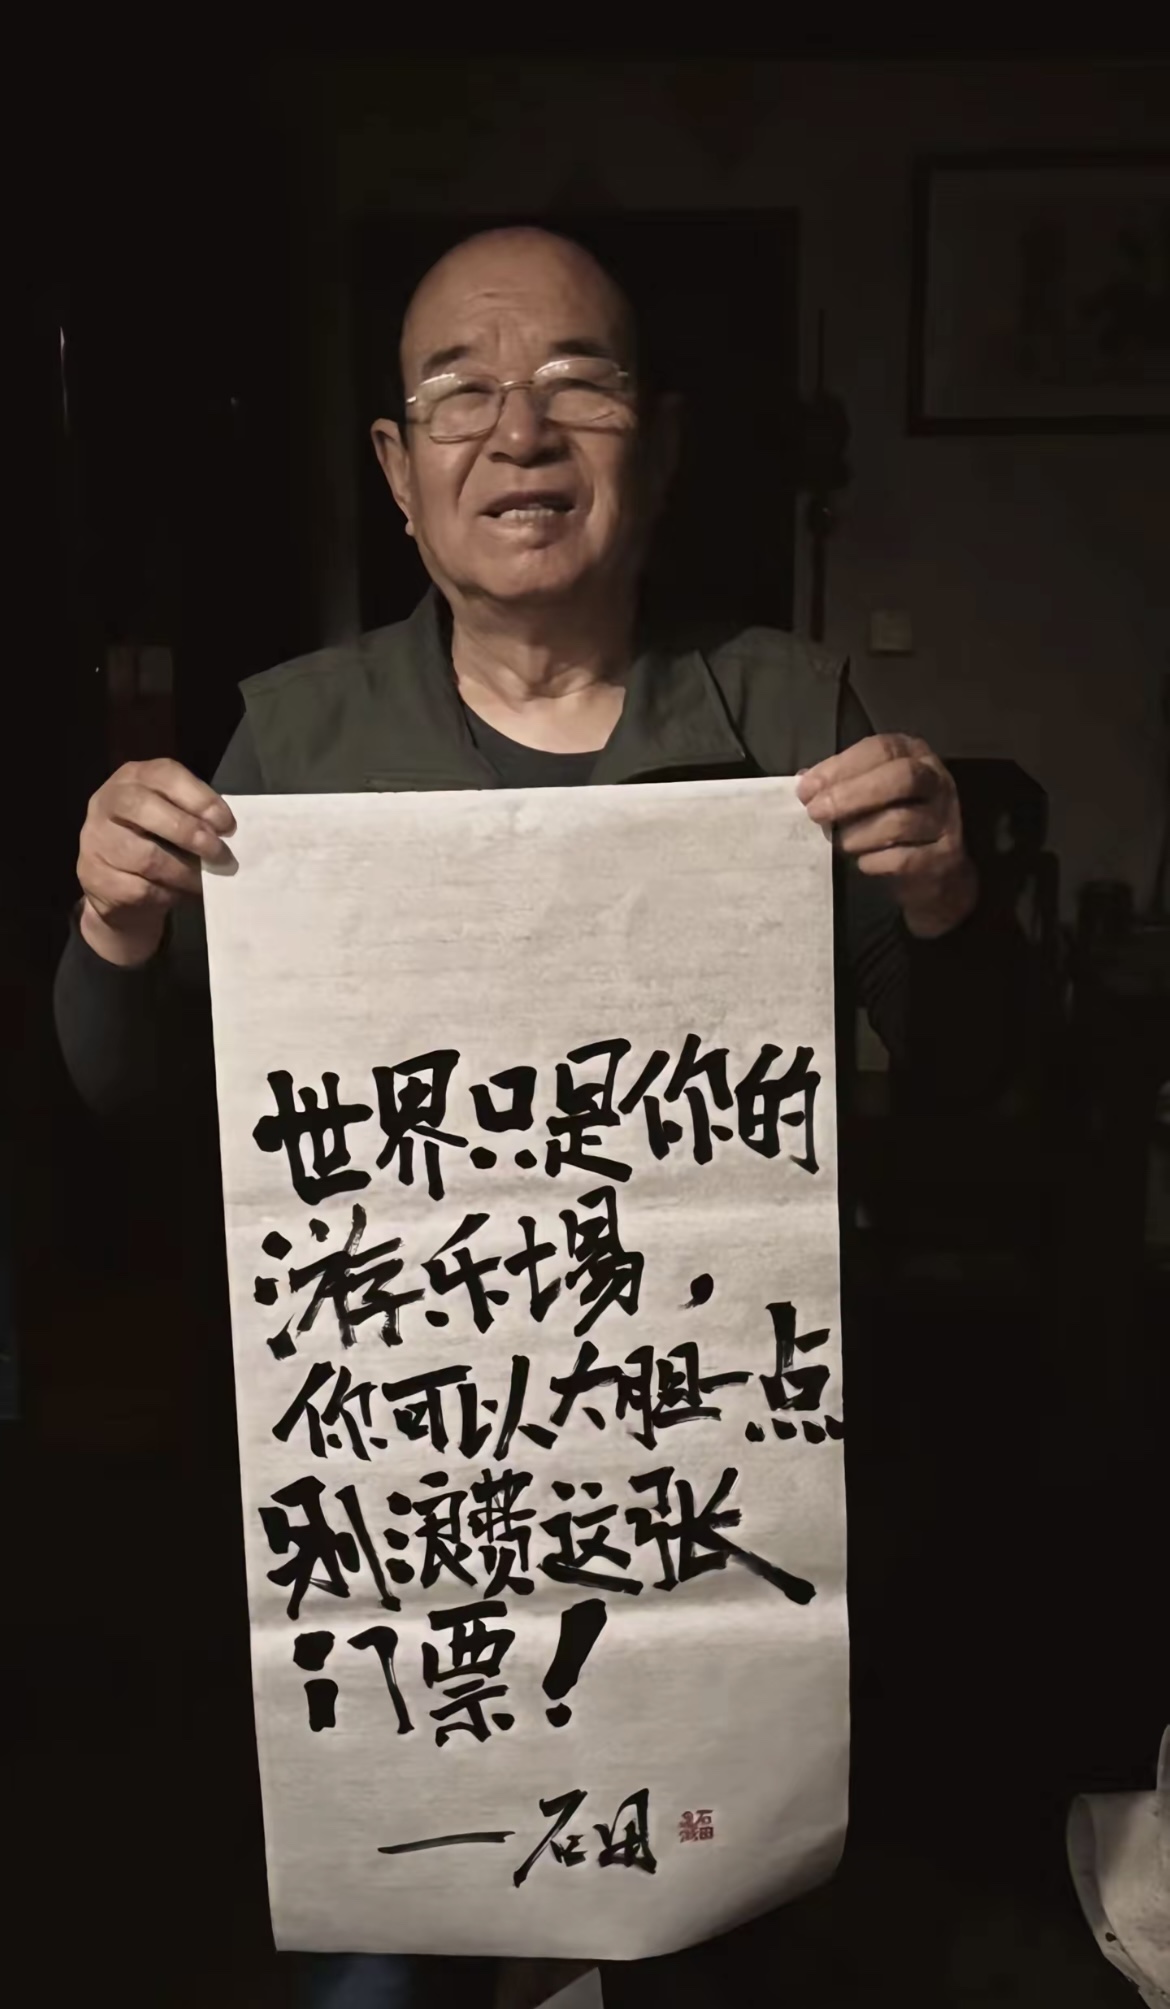 世界只是你的
游乐场，
你可以大胆一点
别浪费这张
门票！
——石田